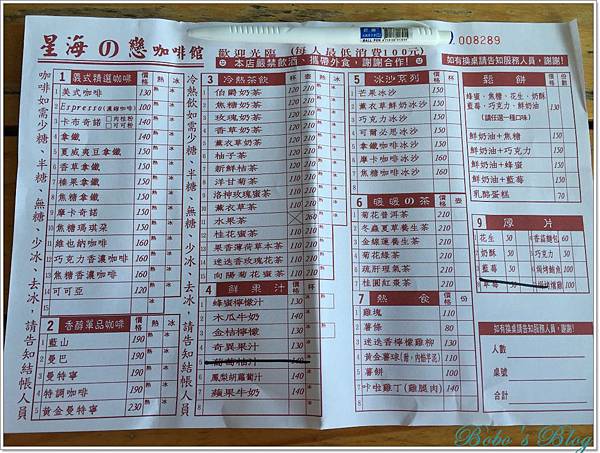 星海の戀咖啡館
歡迎光臨 (每人最低消費100元)
本店嚴禁飲酒、攜帶外食,謝謝合作!
008289
如有換桌請告知服務人員,謝謝!
咖啡如需少糖、半糖、無糖、少冰、去冰,請告知結帳人員
1 義式精選咖啡 價格 熱 冰
1 美式咖啡 130
2 Espresso(濃縮咖啡) 100
3 卡布奇諾 □肉桂粉 □可可粉 140
4 拿鐵 140
5 夏威夷豆拿鐵 150
6 香草拿鐵 150
7 榛果拿鐵 150
8 焦糖拿鐵 150
9 摩卡奇諾 150
10 焦糖瑪琪朵 150
11 維也納咖啡 150
12 巧克力香濃咖啡 150
13 焦糖香濃咖啡 150
14 可可亞 120
15
2 香醇單品咖啡 價格 熱 冰
1 藍山 190
2 曼巴 190
3 曼特寧 190
4 特調咖啡 190
5 黃金曼特寧 230
冷熱飲如需少糖、半糖、無糖、少冰、去冰,請告知結帳人員
3 冷熱茶飲 杯 壺 熱 冰
1 伯爵奶茶 120 210
2 焦糖奶茶 120 210
3 玫瑰奶茶 120 210
4 香草奶茶 120 210
5 薰衣草奶茶 120 210
6 柚子茶 120 210
7 新鮮桔茶 120 210
8 洋甘菊茶 120 210
9 洛神玫瑰蜜茶 120 210
10 薰衣草茶 120 210
11 水果茶 260
12 桂花蜜茶 120 210
13 果香薄荷草本茶 120 210
14 迷迭香玫瑰花茶 120 210
15 向陽菊花蜜茶 120 210
4 鮮果汁 價格 杯
1 蜂蜜檸檬汁 130
2 木瓜牛奶 140
3 金桔檸檬 130
4 奇異果汁 130
5 葡萄柚汁 140
6 鳳梨胡蘿蔔汁 140
7 蘋果牛奶 140
8
5 冰沙系列 價格 杯
1 芒果冰沙 150
2 薰衣草鮮奶冰沙 150
3 巧克力冰沙 150
4 可爾必思冰沙 150
5 抹茶拿鐵冰沙 150
6 摩卡咖啡冰沙 160
7 焦糖咖啡冰沙 160
8
6 暖暖の茶 價格 壺
1 菊花普洱茶 210
2 冬蟲夏草養生茶 210
3 金線蓮養生茶 210
4 菊花綠茶 210
5 疏肝理氣茶 210
6 桂圓紅棗茶 210
7 熱食 價格 份
1 雞塊 110
2 薯條 80
3 迷迭香檸檬雞柳 130
4 黃金薯球 130
5 薯餅 100
6 卡啦雞丁(雞腿肉) 140
鬆餅 價格 份數
蜂蜜、焦糖、花生、奶酥 藍莓、巧克力、鮮奶油 (請任選一種口味) 130
鮮奶油+焦糖 150
鮮奶油+巧克力 150
鮮奶油+蜂蜜 150
鮮奶油+藍莓 150
乳酪蛋糕 70
9 厚片
1 花生 50
2 奶酥 50
3 藍莓 50
4 香蒜麵包 60
5 巧克力 50
如有換桌請告知服務人員,謝謝!
人數
桌號
合計
Bobo's Blog